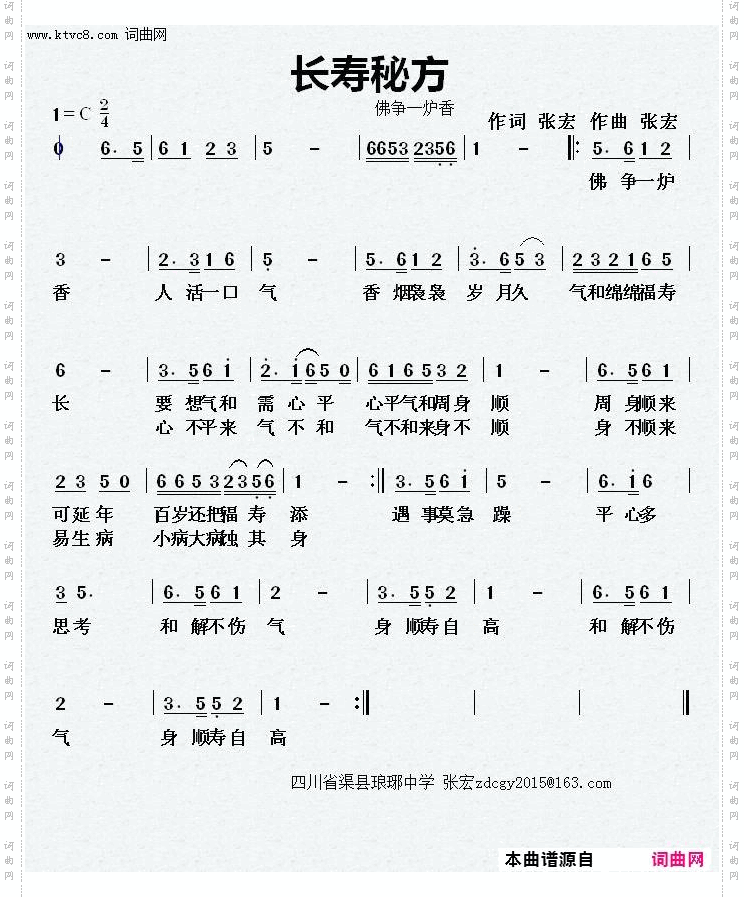 www.ktvc8.com 词曲网
长寿秘方
佛争一炉香
1=C 2/4
作词 张宏 作曲 张宏
0 6. 5 | 6 1 2 3 | 5 - | 6653 2356 | 1 - ‖: 5. 6 1 2 |
佛 争一炉
3 - | 2. 3 1 6 | 5 - | 5. 6 1 2 | 3. 6 5 3 | 2 3 2 1 6 5 |
香 人 活一口 气 香 烟袅袅 岁 月久 气和绵绵福寿
6 - | 3. 5 6 1 | 2. 1 6 5 0 | 6 1 6 5 3 2 | 1 - | 6. 5 6 1 |
长 要 想气和 需 心 平 心平气和周身 顺 周 身顺来
心 不平来 气 不 和 气不和来身不 顺 身 不顺来
2 3 5 0 | 6 6 5 3 2 3 5 6 | 1 - :‖ 3. 5 6 1 | 5 - | 6. 1 6 |
可延 年 百岁还把福 寿 添 遇 事莫急 躁 平 心多
易生 病 小病大病蚀 其 身
3 5. | 6. 5 6 1 | 2 - | 3. 5 5 2 | 1 - | 6. 5 6 1 |
思考 和 解不伤 气 身 顺寿自 高 和 解不伤
2 - | 3. 5 5 2 | 1 - :‖
气 身 顺寿自 高
四川省渠县琅琊中学 张宏zdcgy2015@163.com
本曲谱源自 词曲网